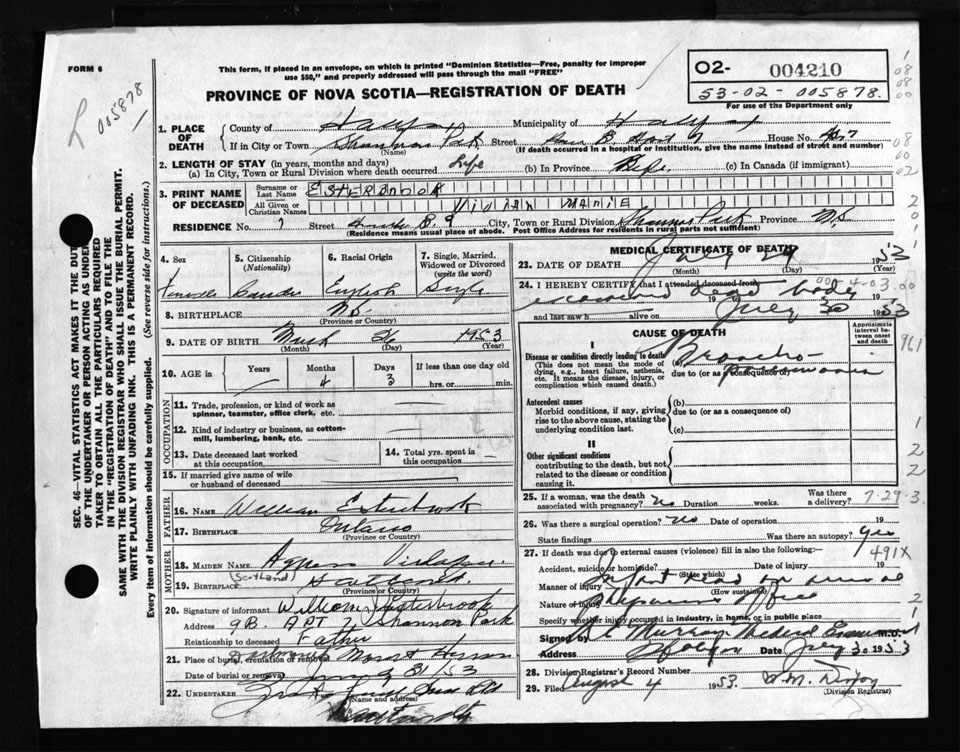 FORM 6
This form, if placed in an envelope, on which is printed "Dominion Statistics—Free, penalty for improper
use $50," and properly addressed will pass through the mail "FREE"
PROVINCE OF NOVA SCOTIA—REGISTRATION OF DEATH
02- 004210
53-02-005878.
For use of the Department only
005878
1. PLACE OF DEATH
County of Halifax Municipality of Halifax
If in City or Town Shannon Park Street House No. Apt 7
(Name) (If death occurred in a hospital or institution, give the name instead of street and number)
2. LENGTH OF STAY (in years, months and days)
(a) In City, Town or Rural Division where death occurred Life (b) In Province Life (c) In Canada (if immigrant)
3. PRINT NAME OF DECEASED
Surname or Last Name ESTERBROOK
All Given or Christian Names VIVIAN MARIE
RESIDENCE No. 7 Street City, Town or Rural Division Shannon Park Province N.S.
(Residence means usual place of abode. Post Office Address for residents in rural parts not sufficient)
4. Sex Female
5. Citizenship (Nationality)
6. Racial Origin English
7. Single, Married, Widowed or Divorced (write the word) Single
8. BIRTHPLACE N.S.
(Province or Country)
9. DATE OF BIRTH March 26 1953
(Month) (Day) (Year)
10. AGE is Years Months 4 Days 3 If less than one day old
hrs. or min.
OCCUPATION
11. Trade, profession, or kind of work as
spinner, teamster, office clerk, etc.
12. Kind of industry or business, as cotton-
mill, lumbering, bank, etc.
13. Date deceased last worked
at this occupation
14. Total yrs. spent in
this occupation
15. If married give name of wife
or husband of deceased
FATHER
16. Name William Esterbrook
17. Birthplace Ontario
(Province or Country)
MOTHER
18. Maiden Name Agnes
19. Birthplace (Scotland) Scotland
(Province or Country)
20. Signature of informant William Esterbrook
Address 9B. APT 7 Shannon Park
Relationship to deceased Father
21. Place of burial, cremation or removal Dartmouth Mount Hermon
Date of burial or removal July 31/53
22. Undertaker
(Name and address)
Dartmouth
MEDICAL CERTIFICATE OF DEATH
23. DATE OF DEATH July 29 1953
(Month) (Day) (Year)
24. I HEREBY CERTIFY that I attended deceased from 000 4-03.00
received dead body
19 to 19
and last saw h alive on July 30 1953
CAUSE OF DEATH
Approximate interval between onset and death
I
Disease or condition directly leading to death
(This does not mean the mode of
dying, e.g., heart failure, asthenia,
etc. It means the disease, injury, or
complication which caused death.)
(a) Broncho-
pneumonia
due to (or as a consequence of)
Antecedent causes
Morbid conditions, if any, giving
rise to the above cause, stating the
underlying condition last.
(b)
due to (or as a consequence of)
(c)
II
Other significant conditions
contributing to the death, but not
related to the disease or condition
causing it.
25. If a woman, was the death
associated with pregnancy? no Duration weeks. Was there a delivery?
7-29-3.
26. Was there a surgical operation? no Date of operation 19
State findings Was there an autopsy? yes
491X
27. If death was due to external causes (violence) fill in also the following:—
Accident, suicide or homicide? Date of injury 19
(State which)
Manner of injury Infant dead on arrival
(How sustained)
Nature of injury Physicians office
Specify whether injured in industry, in home, or in public place
Signed by Murray Medical Examiner M.D.
Halifax Date July 30 1953
28. Division Registrar's Record Number
29. Filed August 4 1953
(Division Registrar)
SEC. 46—VITAL STATISTICS ACT MAKES IT THE DUTY
OF THE UNDERTAKER OR PERSON ACTING AS UNDER-
TAKER TO OBTAIN ALL THE PARTICULARS REQUIRED
IN THE "REGISTRATION OF DEATH" AND TO FILE THE
SAME WITH THE DIVISION REGISTRAR WHO SHALL ISSUE THE BURIAL PERMIT.
WRITE PLAINLY WITH UNFADING INK. THIS IS A PERMANENT RECORD.
Every item of information should be carefully supplied. (See reverse side for instructions.)